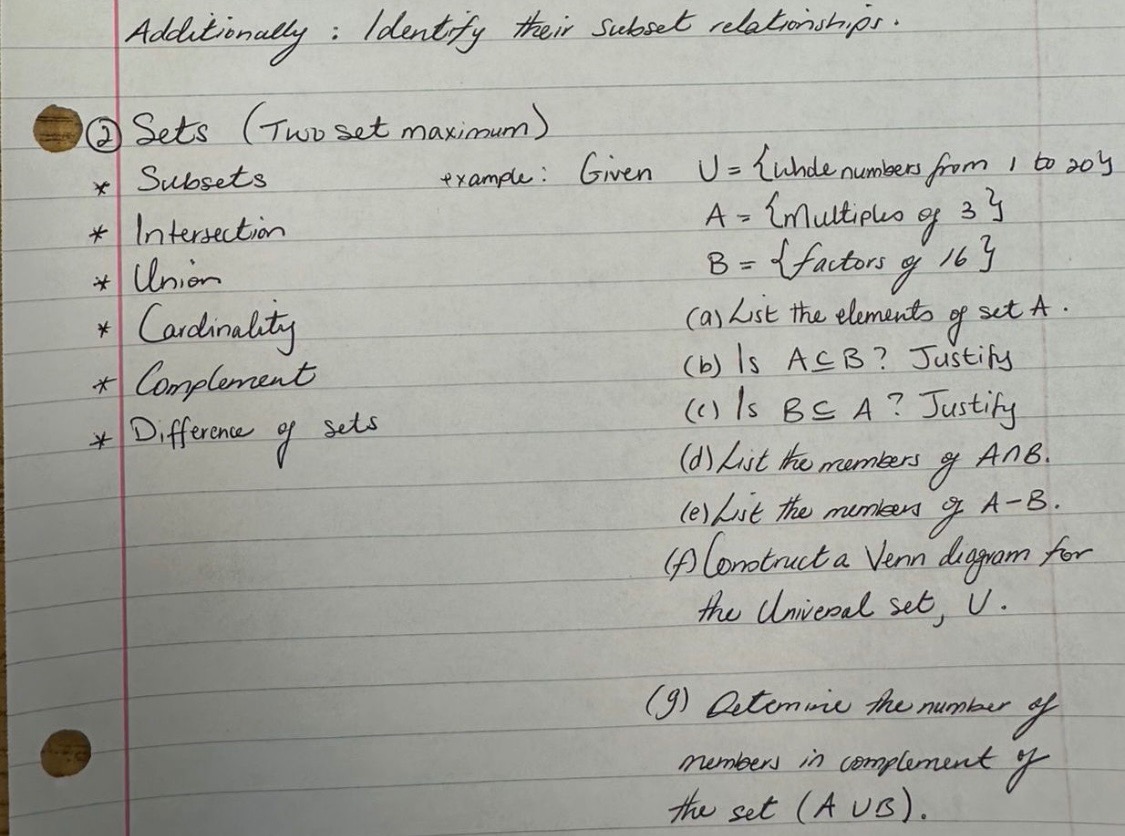 Additionally : Identify their subset relationships.
② Sets (Two set maximum)
* Subsets
* Intersection
* Union
* Cardinality
* Complement
* Difference of sets
example: Given U = {whole numbers from 1 to 20}
A = {Multiples of 3}
B = {factors of 16}
(a) List the elements of set A.
(b) Is A ⊆ B? Justify
(c) Is B ⊆ A? Justify
(d) List the members of A∩B.
(e) List the members of A-B.
(f) Construct a Venn diagram for
the Universal set, U.
(g) Determine the number of
members in complement of
the set (A ∪ B).